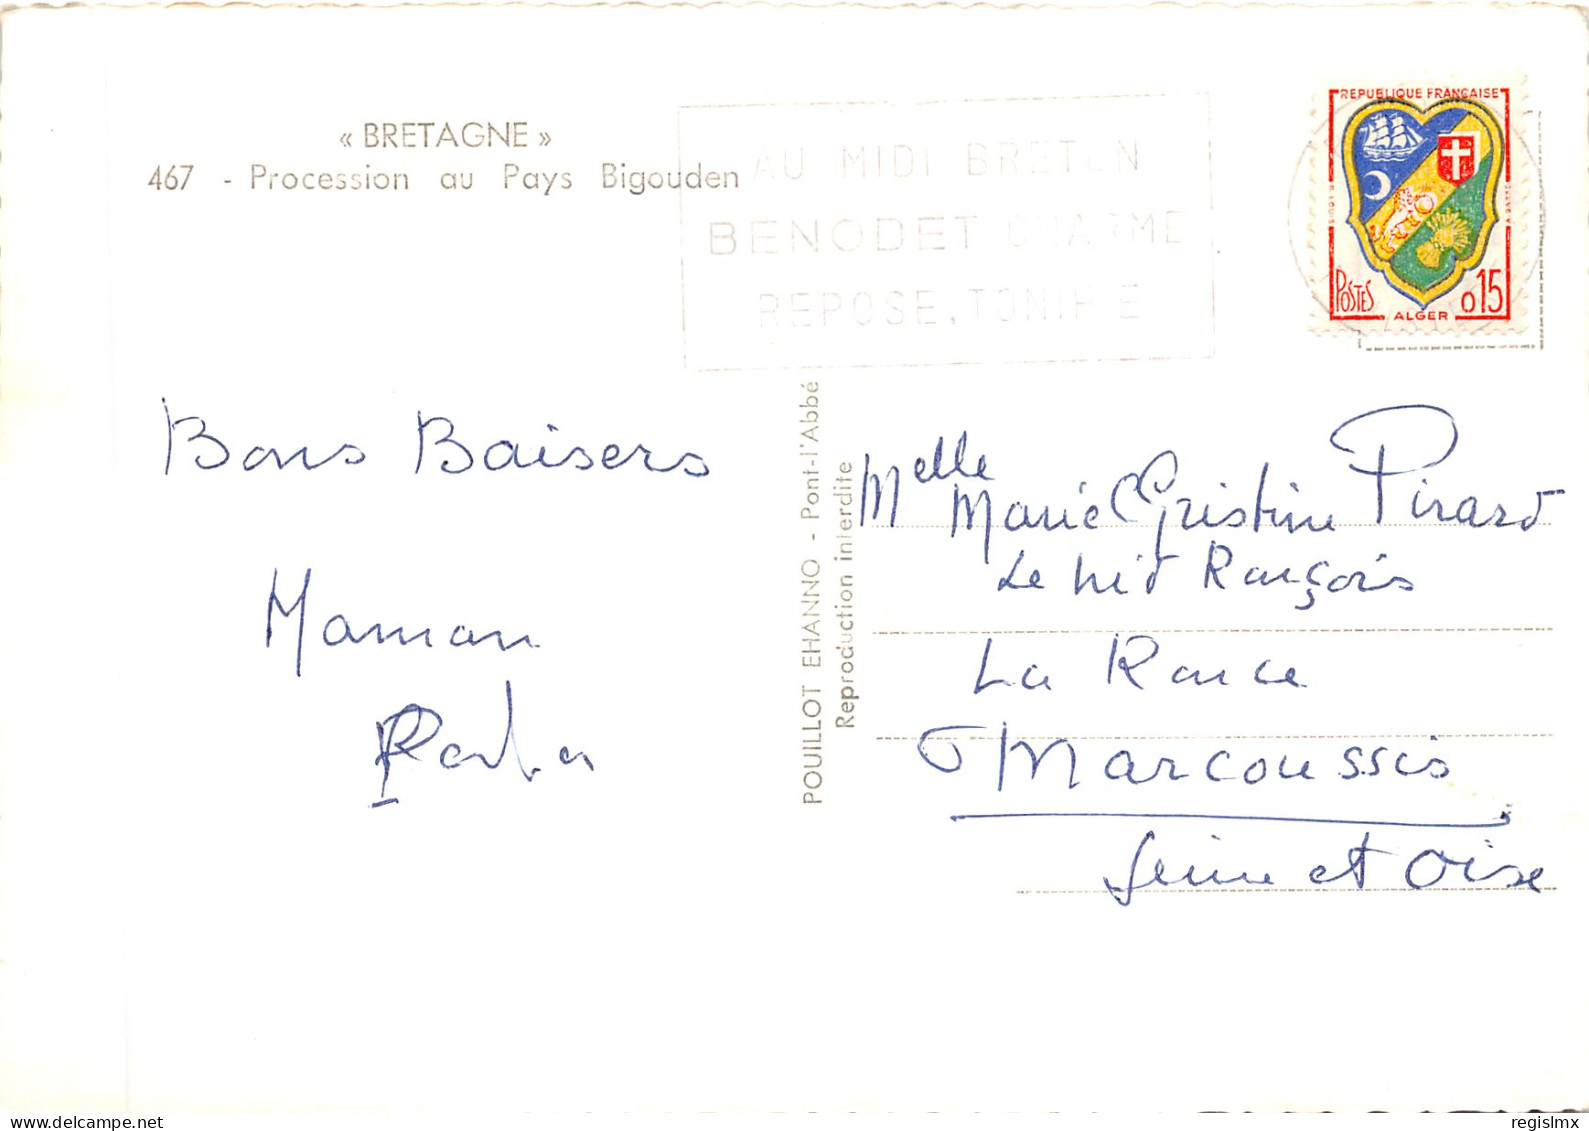 « BRETAGNE »
467 - Procession au Pays Bigouden
AU MIDI BRETON
BENODET CHARME
REPOSE, TONIFIE
REPUBLIQUE FRANÇAISE
POSTES
ALGER
0,15
Bons Baisers
Maman
POUILLOT EHANNO - Pont-l'Abbé
Reproduction interdite
Melle Marie Christine Pirard
Le nid Rançois
La Ronce
Marcoussis
Seine et Oise
regislmx